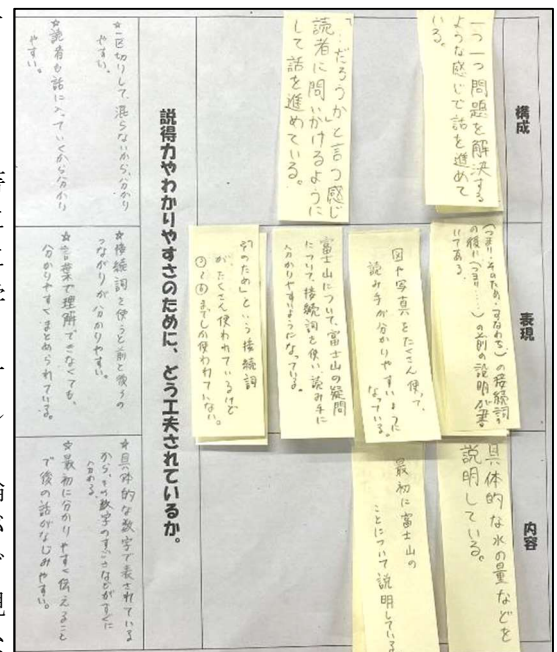 構成
一つ一つ問題を解決する
ような感じで話を進めて
いる。
「…だろうか」と言う感じ
読者に問いかけるように
して話を進めている。
表現
(つまり・そのため・すなわち)の接続詞
の後に(つまり……)の前の説明が書
いてある。
図や写真をたくさん使って、
読み手が分かりやすいように
なっている。
富士山について富士山の疑問
について接続詞を使い読み手に
分かりやすいようになっている。
「そのため」という接続詞
がたくさん使われているけど
までしか使われていない。
内容
具体的な水の量などを
説明している。
最初に富士山の
ことについて説明している
説得力やわかりやすさのために、どう工夫されているか。
☆一区切りして、混らないから、分かり
やすい。
☆読者も話に入っていくから分かり
やすい。
☆接続詞を使うと前と後ろの
つながりが分かりやすい。
☆言葉で理解できなくても、
分かりやすくまとめられている。
☆具体的な数字で表されている
から、その数字のすごさなどがすぐに
分かる。
☆最初に分かりやすく伝えること
で後の話がなじみやすい。